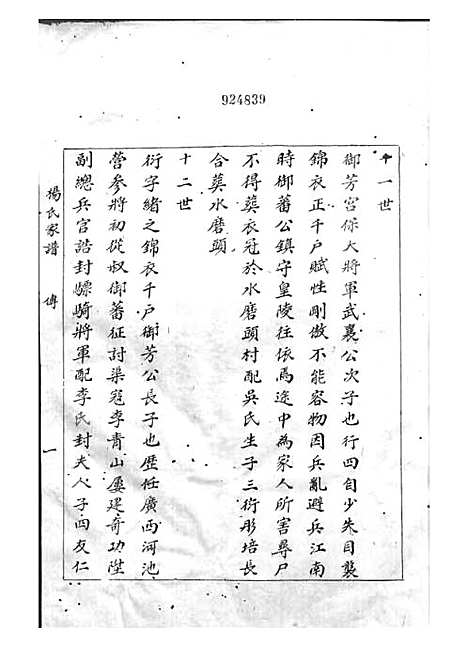 924839
十一世
御芳宮保大將軍武襄公次子也行四自少失目襲
錦衣正千户賦性剛傲不能容物因兵亂避兵江南
時御蕃公鎮守皇陵往依焉途中為家人所害尋尸
不得葬衣冠於水磨頭村配吳氏生子三衍彤培長
合葬水磨頭
十二世
衍字緒之錦衣千户御芳公長子也歷任廣西河池
營參將初從叔御蕃征討渠寇李青山屢建奇功陞
副總兵官誥封驃騎將軍配李氏封夫人子四友仁
楊氏家譜
傳
一